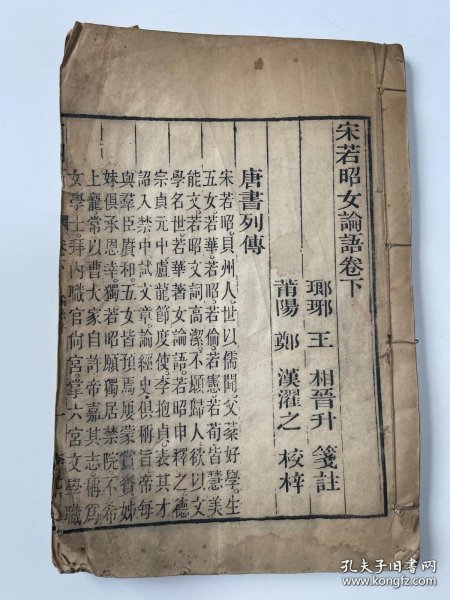 宋若昭女論語卷下
瑯琊 王 相晉升 箋註
莆陽 鄭 漢濯之 校梓
唐書列傳
宋若昭貝州人世以儒聞父棻好學生
五女若華若昭若倫若憲若荀皆慧美
能文若昭文詞高潔不願歸人欲以文
學名世若華著女論語若昭申釋之德
宗貞元中盧龍節度使李抱貞表其才
詔入禁中試文章論經史俱稱旨帝每
與羣臣賡和五女皆預焉屢蒙賞賚姊
妹俱承恩幸獨若昭願獨居禁院不希
上寵常以曹大家自許帝嘉其志稱爲
女學士拜內職官尚宮掌六宮文學職
孔夫子旧书网
www.kongfz.com